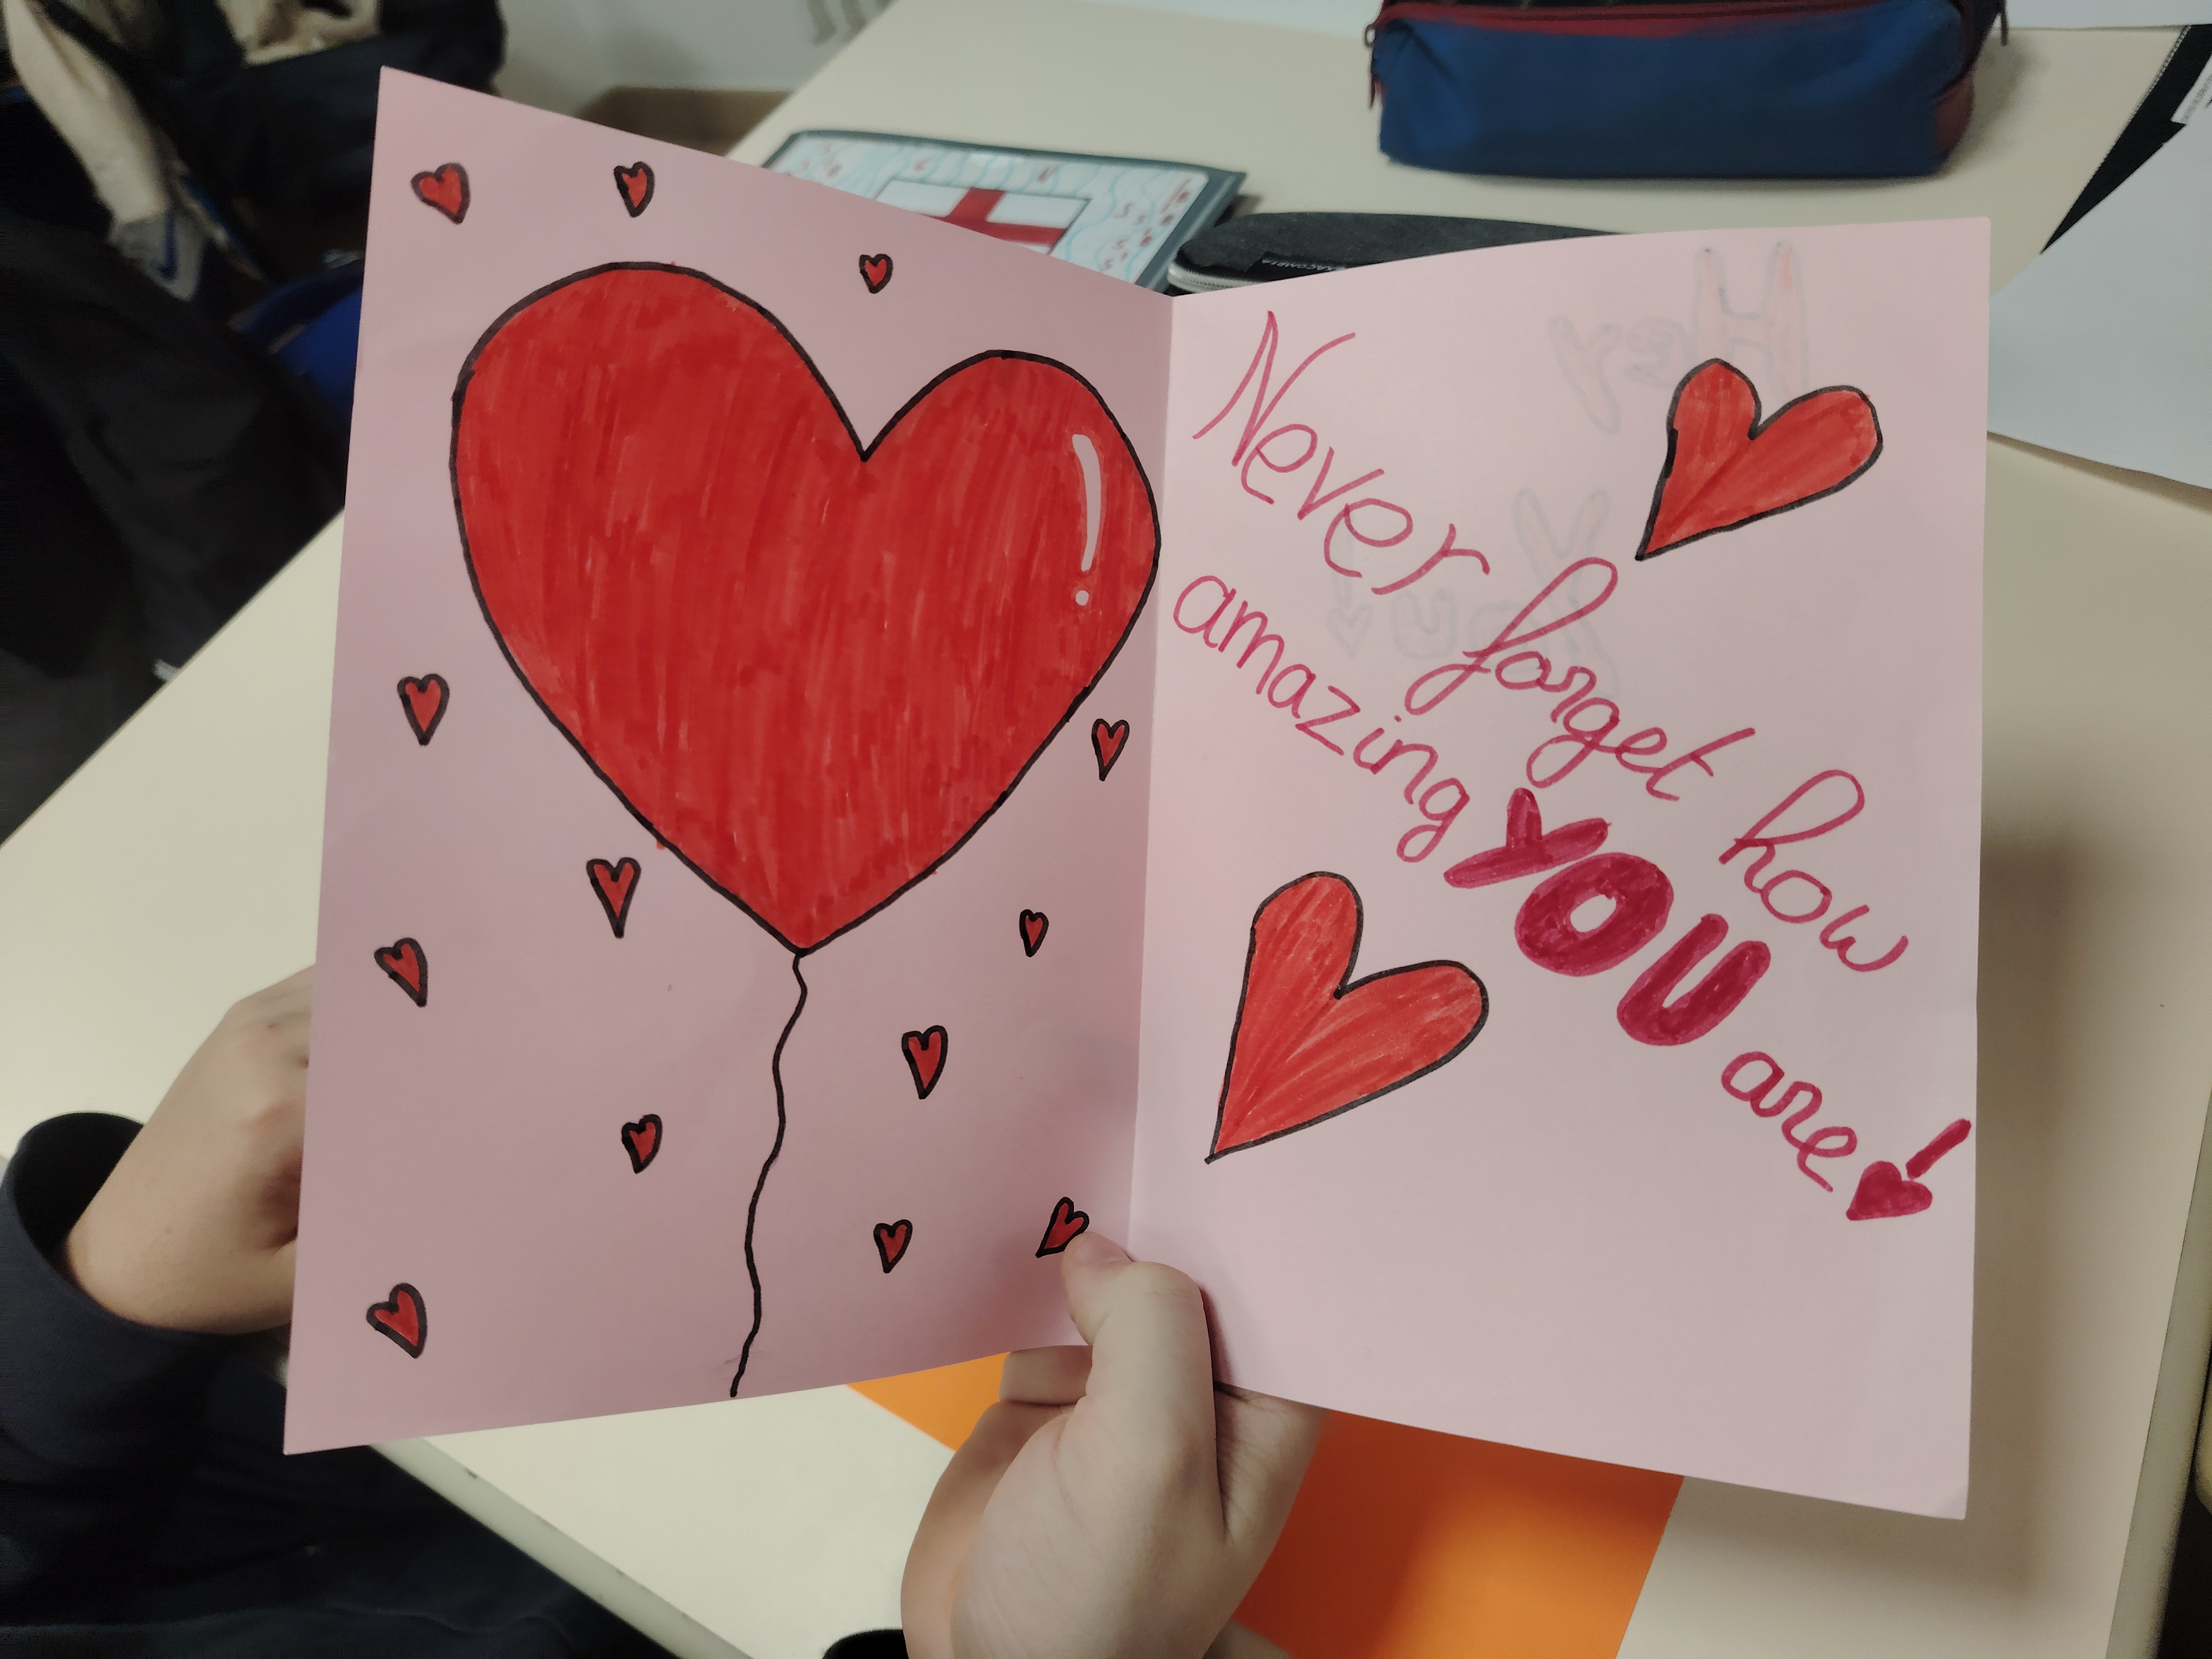 Never forget how
amazing YOU are!
Hey
You